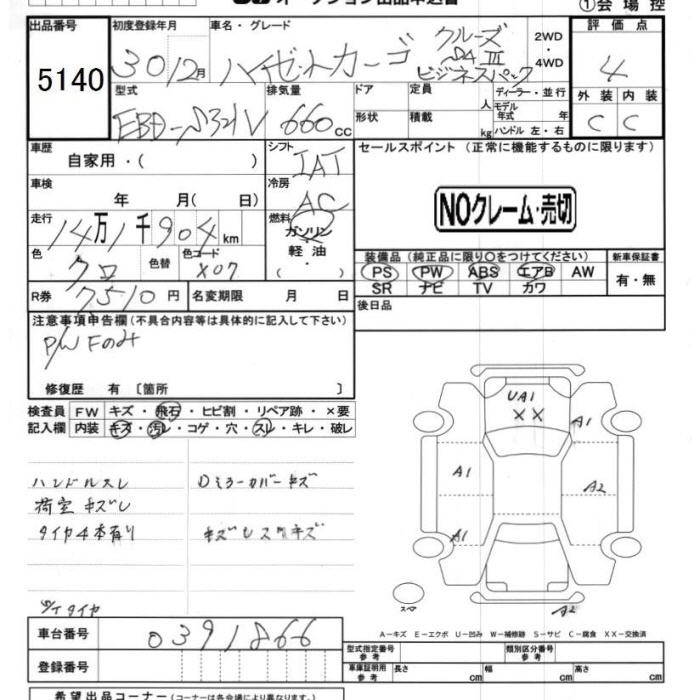 オークション出品申込書
①会場控
出品番号 5140
初度登録年月 30 12月
車名・グレード ハイゼットカーゴ クルーズ SAⅢ ビジネスパック
2WD ・ 4WD
評価点 4
外装 内装
C C
型式 EBD-S321V
排気量 660 cc
ドア 形状
定員 人 積載 kg
ディーラー・並行
モデル年式 年
ハンドル 左・右
車歴 自家用・( )
シフト IAT
セールスポイント (正常に機能するものに限ります)
NOクレーム・売切
車検 年 月( 日)
冷房 AC
走行 14万1千904km
燃料 ガソリン 軽油 ( ・ )
色 クロ 色替 色コード X07
R券 7510円 名変期限 月 日
装備品 (純正品に限り○をつけてください)
PS PW ABS エアB AW
SR ナビ TV カワ
新車保証書 有・無
後日品
注意事項申告欄(不具合内容等は具体的に記入して下さい)
P/W Fのみ
修復歴 有 〔箇所 〕
検査員記入欄
FW キズ・飛石・ヒビ割・リペア跡・×要
内装 キズ・汚レ・コゲ・穴・スレ・キレ・破レ
ハンドルスレ Dミラーカバーキズ
荷室キズレ
タイヤ4本有り
S/Tタイヤ
UA1
XX
A1
A1
A2
A1
A2
スペア
A-キズ E-エクボ U-凹み W-補修跡 S-サビ C-腐食 XX-交換済
車台番号 0391866
登録番号
型式指定番号 参考
類別区分番号 参考
車庫証明用 参考 長さ cm 幅 cm 高さ cm
希望出品コーナー(コーナーは各会場により異なります。)